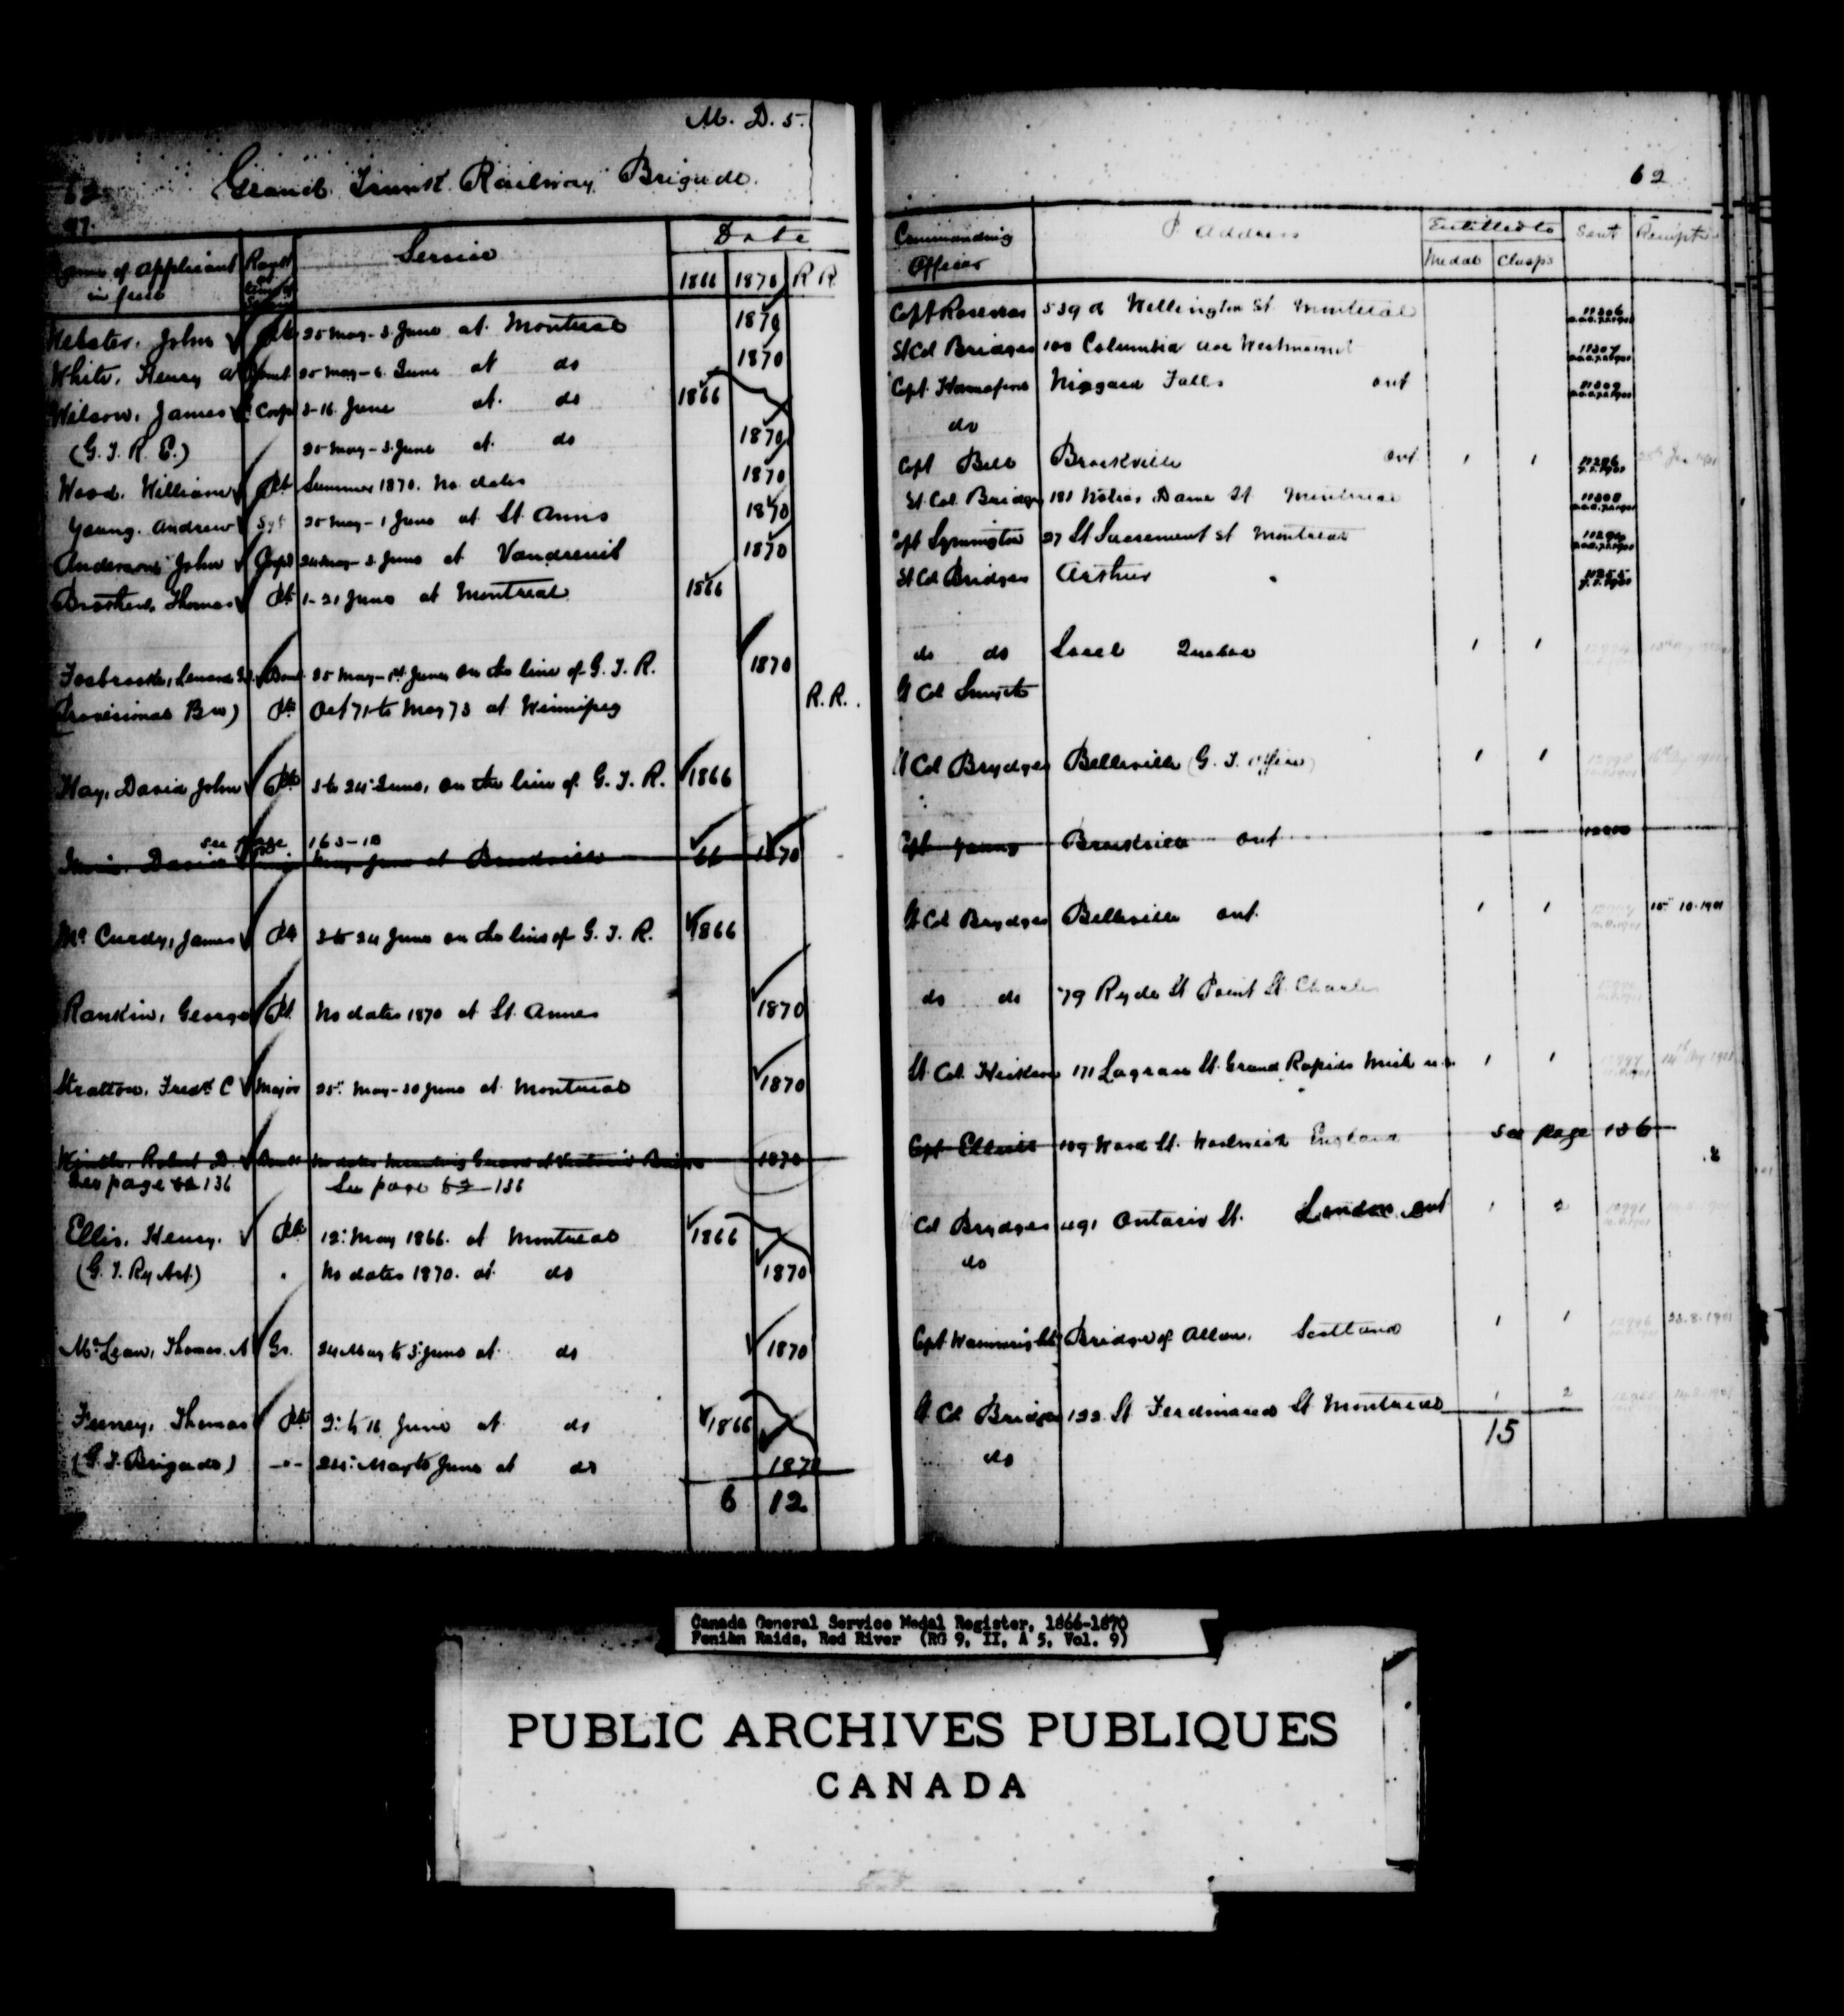 M. D. 5.
Grand Trunk Railway Brigade.
62
97.
62
Name of applicant in full
Rank
Service
Date
1866 1870 R R
Commanding Officer
P. Address
Entitled to
Medal Clasps
Sent
Receipt
Webster, John Pte 25 May - 3 June at Montreal 1870 Capt 539 a Wellington St Montreal
White, Henry A 25 May - 6 June at do 1870 Lt Col Bridges 100 Columbia Ave Westmount
Wilson, James Corp 2-16 June at do 1866 Capt Hannaford Niagara Falls Ont
(G. T. R. E.) 25 May - 3 June at do 1870 do
Wood, William Pte Summer 1870. No dates 1870 Capt Bell Brockville Ont 1 1
Young, Andrew Sgt 25 May - 1 June at St. Anns 1870 Lt Col Bridges 181 Notre Dame St Montreal
Anderson John Corpl 24 May - 3 June at Vaudreuil 1870 Capt Symington 27 St Sacrement St Montreal
Thomas Pte 1-21 June at Montreal 1866 Lt Col Bridges Arthur
Fosbrooke, 25 May - 1st June on the line of G. T. R. 1870 do do Sorel Quebec 1 1
(Provisional Bn) Pte Oct 71 to May 73 at Winnipeg R. R. Lt Col
Hay, David John Pte 3 to 24 June, on the line of G. T. R. 1866 Lt Col Brydges Belleville (G. T. Office) 1 1
see page 163-10
David May June at Brockville 66 1870 Capt Young Brockville Ont
McCurdy, James Pte 3 to 24 June on the line of G. T. R. 1866 Lt Col Brydges Belleville Ont. 1 1 15 10.1901
Rankin, George Pt No dates 1870 at St. Annes 1870 do do 79 Ryde St Point St. Charles
Stratton, Fredk C Major 25 May - 30 June at Montreal 1870 Lt. Col. Hickson 171 Lagrave St. Grand Rapids Mich 1 1
Robert D. No dates Mounting Guard at Victoria Bridge 1870 Capt Elliott 109 Ward St. Woolwich England see page 136
See page 136 See page 62 136
Ellis, Henry. Pte 12 May 1866. at Montreal 1866 Col Brydges 491 Ontario St. London Ont 1 2
(G. T. Ry Art.) " No dates 1870. at do 1870 do
McLean, Thomas. A Gr. 24 May to 3 June at do 1870 Capt Wainwright Bridge of Allan, Scotland 1 1 23.8.1901
Feeney, Thomas Pte 2 to 16 June at do 1866 Lt Col Bridges 122 St Ferdinand St Montreal 1 2
(G. T. Brigade) -"- 24 May to June at do 1870 do
6 12
15
Canada General Service Medal Register, 1866-1870
Fenian Raids, Red River (RG 9, II, A 5, Vol. 9)
PUBLIC ARCHIVES PUBLIQUES
CANADA